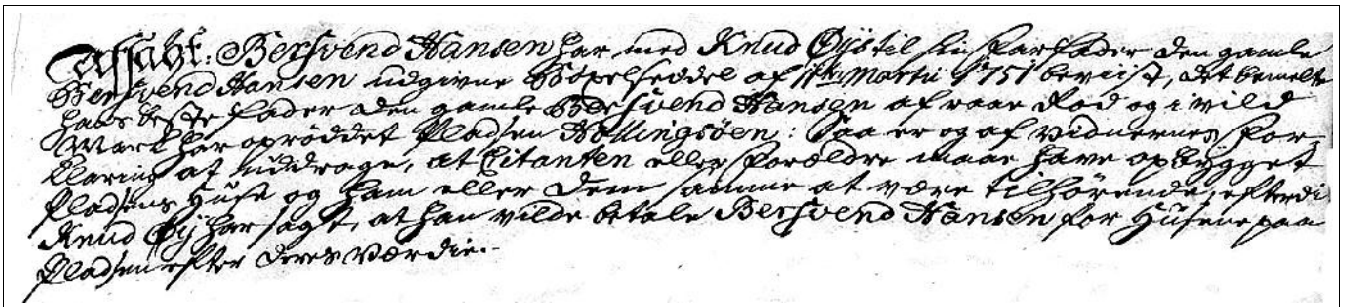 Afsagt: Bersvend Hansen har med Knud Øys til hans farfader den gamle
Bersvend Hansen udgivne Bøxelseddel af 11te Martii 1751 beviist, det bemelte
hans beste fader den gamle Bersvend Hansen af raae Rod og i vild
Mark har oprøddet Pladsen Hollingsøen: Saa er og af vidnernes for-
klaring at uddrage, at Citanten eller forældre maae have opbygget
Pladsens Huse og ham eller dem samme at være tilhørende, efterdi
Knud Øy har sagt, at han vilde betale Bersvend Hansen for Husene paa
Pladsen efter deres Værdie.